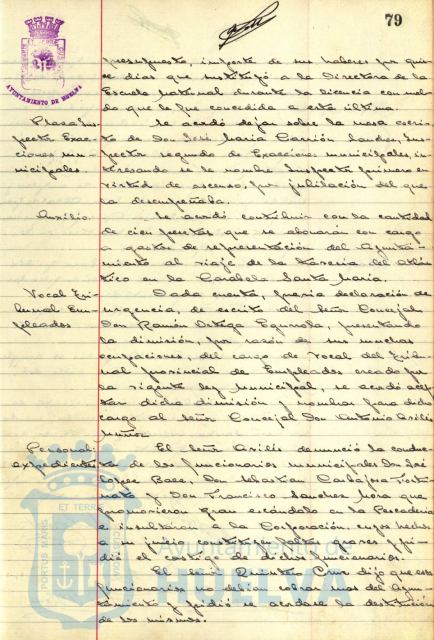 79
AYUNTAMIENTO DE HUELVA
presupuesto, importe de sus haberes por quin-
ce días que sustituyó a la Directora de la
Escuela Maternal durante la licencia con suel-
do que le fue concedida a esta última.
Plaza Ins-
pector Exac-
ciones mu-
nicipales.
Se acordó dejar sobre la mesa escri-
to de Don José María Carrión Ins-
pector segundo de Exacciones municipales, in-
teresando se le nombre Inspector primero en
virtud de ascenso, por jubilación del que
la desempeñaba.
Auxilio.
Se acordó contribuir con la cantidad
de cien pesetas que se abonarán con cargo
a gastos de representación del Ayunta-
miento al viaje de la travesía del Atlán-
tico en la Carabela Santa María.
Vocal Tri-
bunal Em-
pleados
Dada cuenta, previa declaración de
urgencia, de escrito del Señor Concejal
Don Ramón Ortega presentando
la dimisión, por razón de sus muchas
ocupaciones, del cargo de Vocal del Tribu-
nal provincial de Empleados creado por
la vigente ley Municipal, se acordó acep-
tar dicha dimisión y nombrar para dicho
cargo al Señor Concejal Don Antonio
Muñoz
Personal:
expedientes
El Señor denunció la conduc-
ta de los funcionarios municipales Don José
López Baez, Don Sebastian
y Don Francisco Sanchez Mora que
promovieron gran escándalo en la Pescadería
e insultaron a la Corporación, cuyos hechos
a su juicio constituyen faltas graves y pi-
dió el castigo de dichos funcionarios.
El Señor Quintero Cruz dijo que estos
funcionarios no debían cobrar mas del Ayun-
tamiento y pidió se acordase la destitución
de los mismos.
PORTUS MARIS ET TERRAE CUSTODIA
Ayuntamiento de
HUELVA